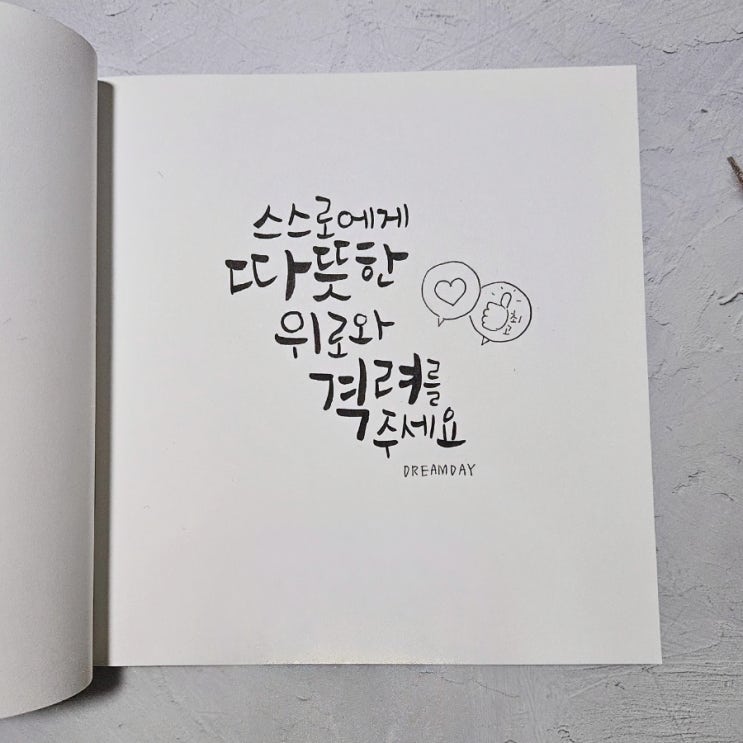 스스로에게
따뜻한
위로와
격려를
주세요
최고
DREAMDAY